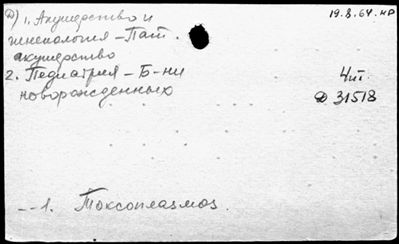 Д) 1. Акушерство и
гинекология – Пат.
акушерство
2. Педиатрия – Б-ни
новорожденных
19.8.64.
4шт.
Д 31518
--1. Токсоплазмоз.